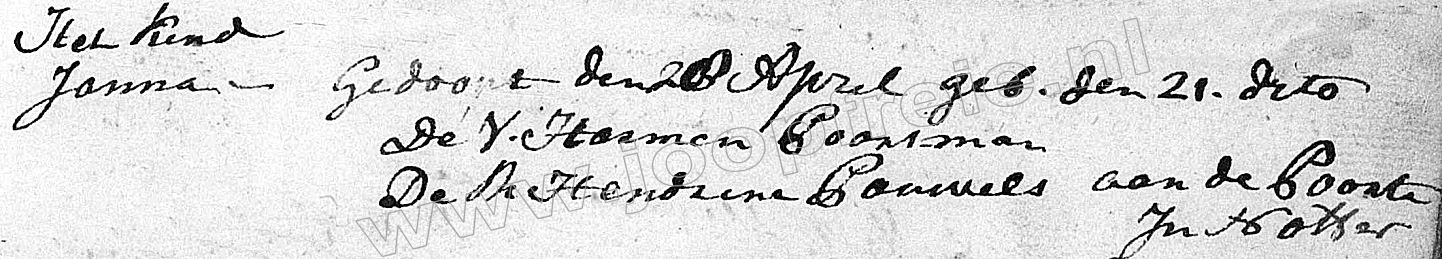 Het kind
Janna - Gedoopt den 28 April geb. den 21. dito
De V. Harmen Poortman
De M Hendrine Pauwels aan de Poorte
In Notter
www.joopireis.nl